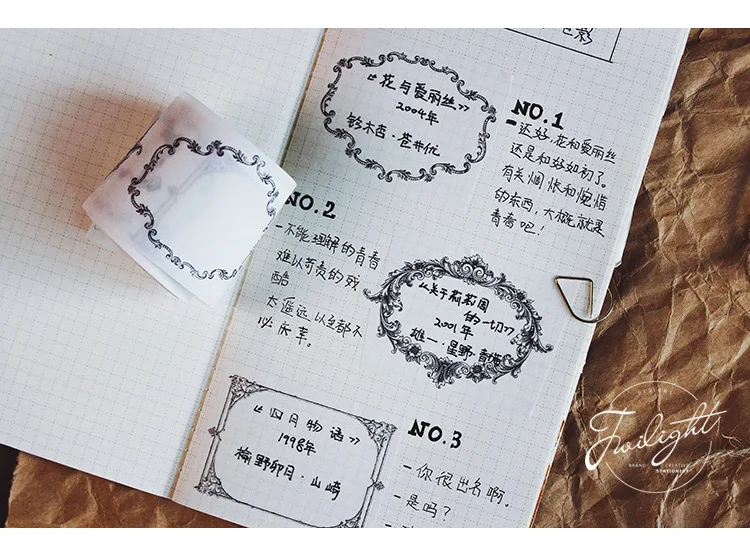 色影
《花与爱丽丝》
2004年
铃木杏·苍井优
NO.1
还好,花和爱丽丝
还是和好如初了。
有关惆怅和惋惜
的东西,大概就是
青春吧!
NO.2
一不能理解的青春
难以苛责的残
酷
太遥远,以至都不
必庆幸。
《关于莉莉周
的一切》
2001年
雄一·星野·青猫
《四月物语》
1998年
榆野卯月·山崎
NO.3
一你很出名啊。
一是吗?
Twilight
BRAND CREATIVE
STATIONERY